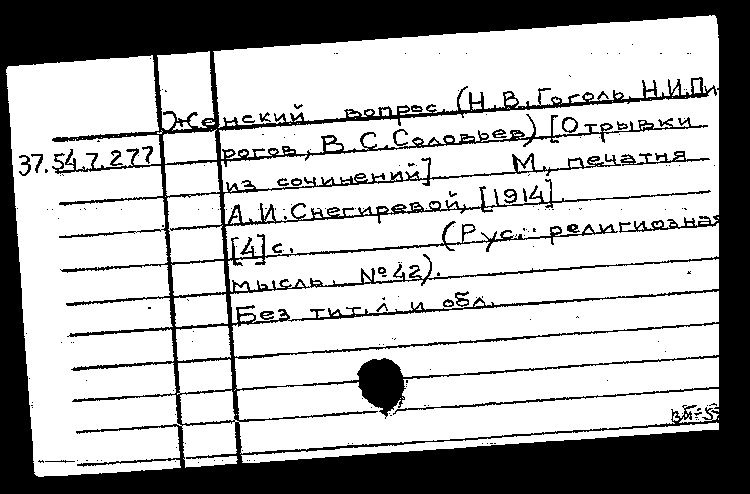 Женский вопрос. (Н.В.Гоголь, Н.И.Пи-
37.54.7.277
рогов, В.С.Соловьев) [Отрывки
из сочинений] М., печатня
А.И.Снегиревой, [1914].
[4] с. (Рус. религиозная
мысль. № 42).
Без тит.л. и обл.